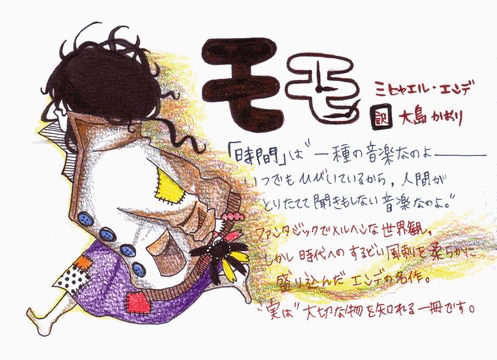 モモ
ミヒャエル・エンデ
訳 大島かおり
「時間」は“一種の音楽なのよ――
いつでもひびいているから、人間が
とりたてて聞きもしない音楽なのよ。”
ファンタジックでメルヘンな世界観。
しかし時代へのするどい風刺を柔らかに
盛り込んだエンデの名作。
“実は”大切な物を知れる一冊です。